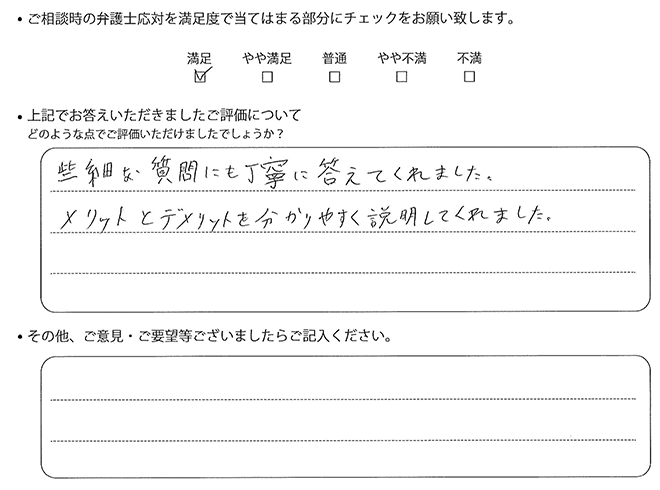 ・ご相談時の弁護士応対を満足度で当てはまる部分にチェックをお願い致します。
満足 やや満足 普通 やや不満 不満
・上記でお答えいただきましたご評価について
どのような点でご評価いただけましたでしょうか？
些細な質問にも丁寧に答えてくれました。
メリットとデメリットを分かりやすく説明してくれました。
・その他、ご意見・ご要望等ございましたらご記入ください。